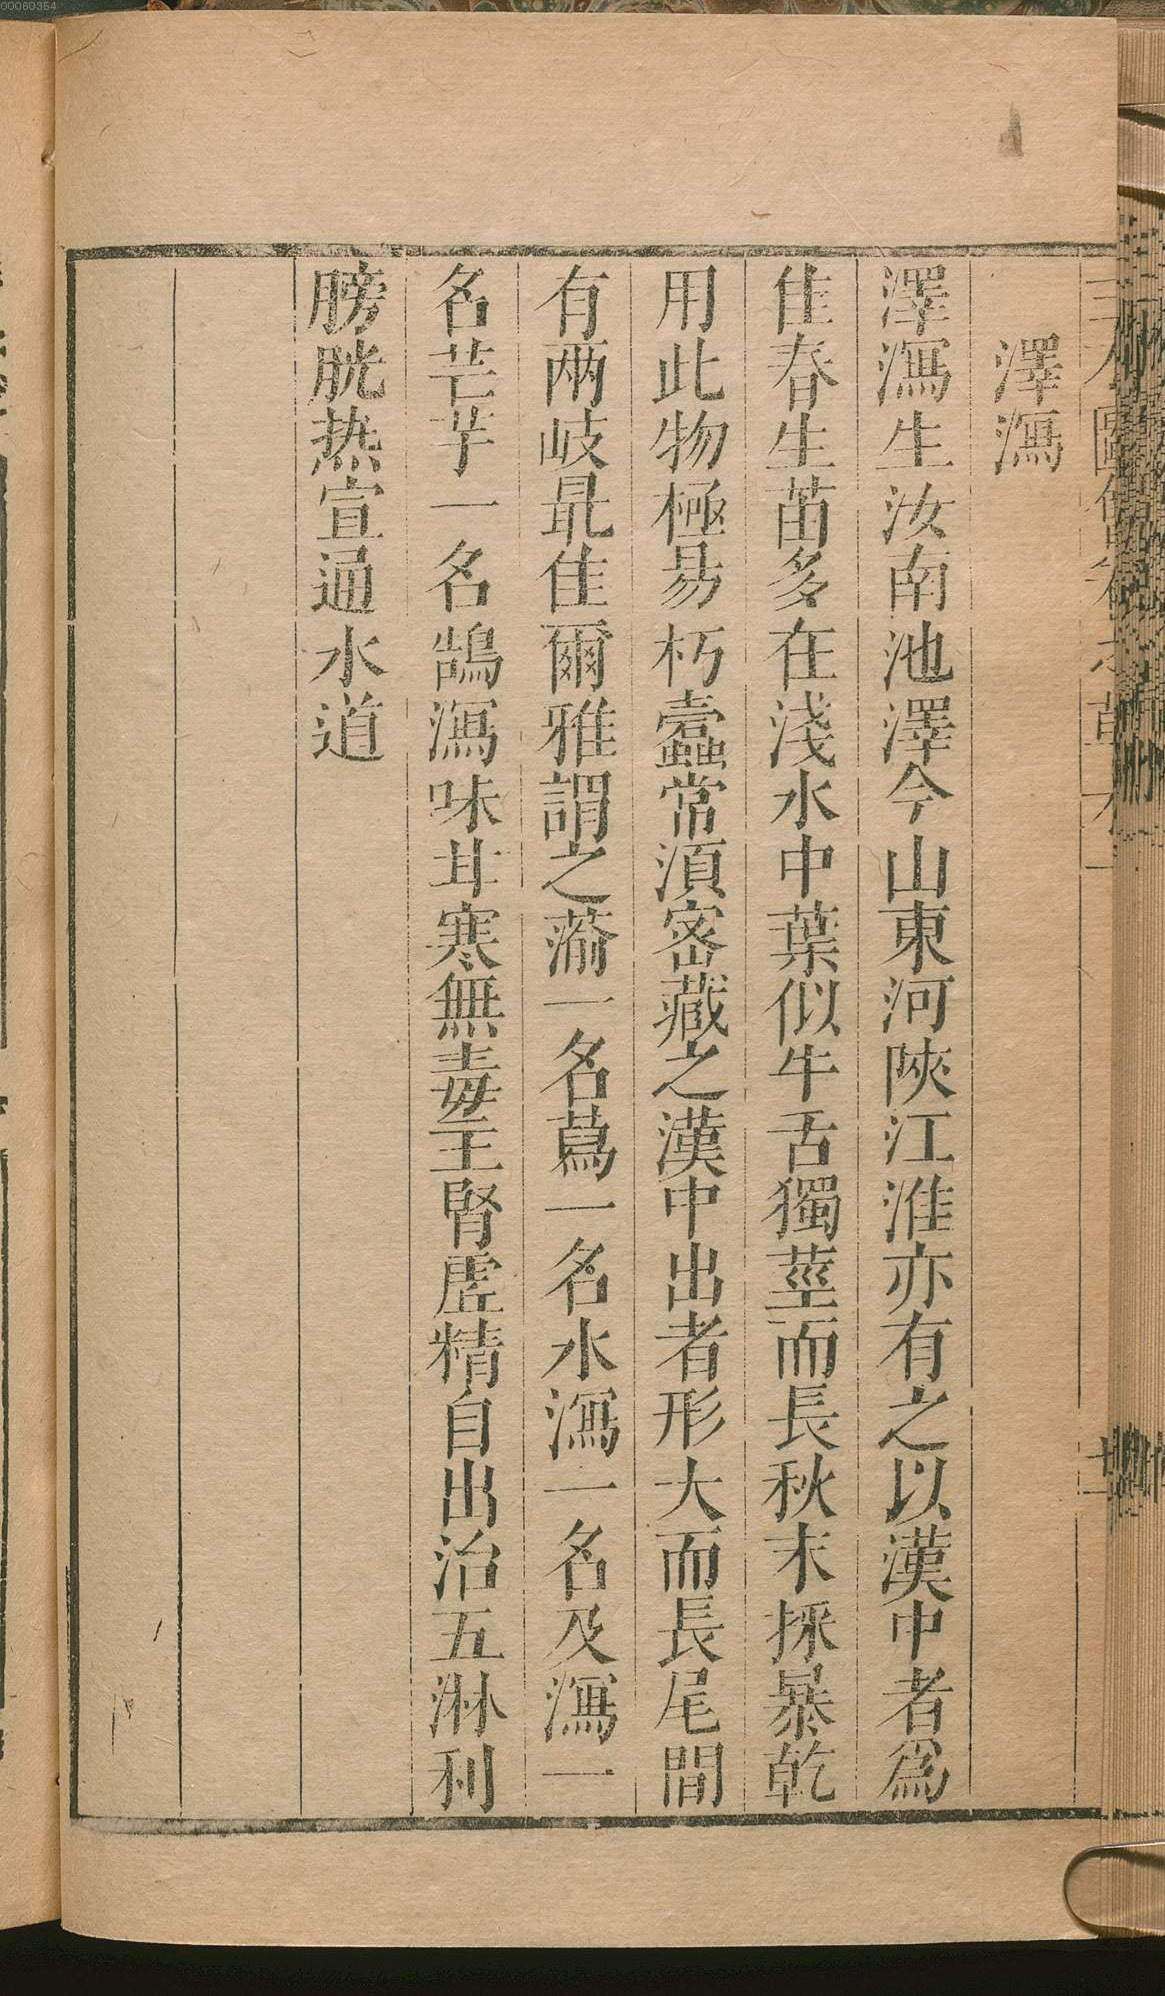 00060354
澤瀉
澤瀉生汝南池澤今山東河陝江淮亦有之以漢中者爲
佳春生苗多在淺水中葉似牛舌獨莖而長秋末採暴乾
用此物極易朽蠹常湏密藏之漢中出者形大而長尾間
有兩岐最佳爾雅謂之蕍一名蕮一名水瀉一名及瀉一
名芒芋一名鵠瀉味甘寒無毒主腎虛精自出治五淋利
膀胱热宣通水道